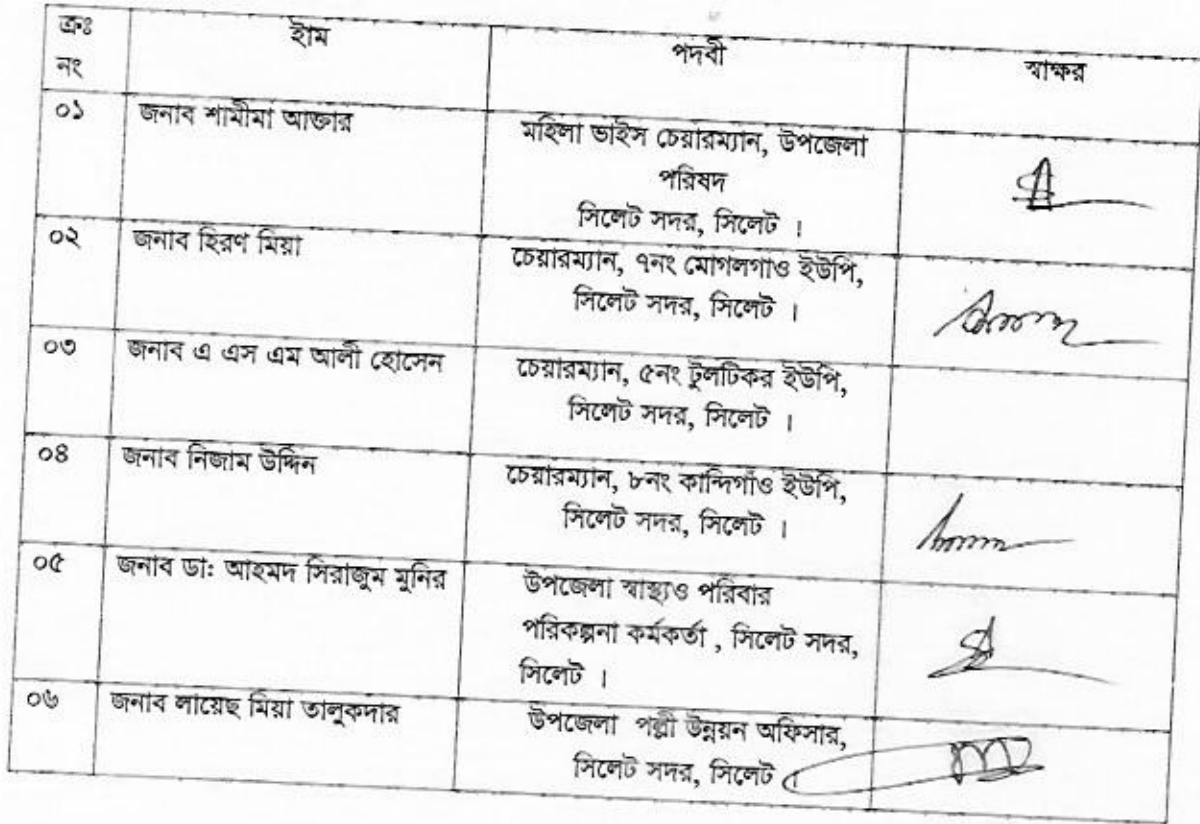 ক্রঃ নং হাম পদবী স্বাক্ষর
০১ জনাব শামীমা আক্তার মহিলা ভাইস চেয়ারম্যান, উপজেলা
পরিষদ
সিলেট সদর, সিলেট ।
০২ জনাব হিরণ মিয়া চেয়ারম্যান, ৭নং মোগলগাও ইউপি,
সিলেট সদর, সিলেট ।
০৩ জনাব এ এস এম আলী হোসেন চেয়ারম্যান, ৫নং টুলটিকর ইউপি,
সিলেট সদর, সিলেট ।
০৪ জনাব নিজাম উদ্দিন চেয়ারম্যান, ৮নং কান্দিগাঁও ইউপি,
সিলেট সদর, সিলেট ।
০৫ জনাব ডা: আহমদ সিরাজুম মুনির উপজেলা স্বাস্থ্যও পরিবার
পরিকল্পনা কর্মকর্তা , সিলেট সদর,
সিলেট ।
০৬ জনাব লায়েছ মিয়া তালুকদার উপজেলা পল্লী উন্নয়ন অফিসার,
সিলেট সদর, সিলেট ।